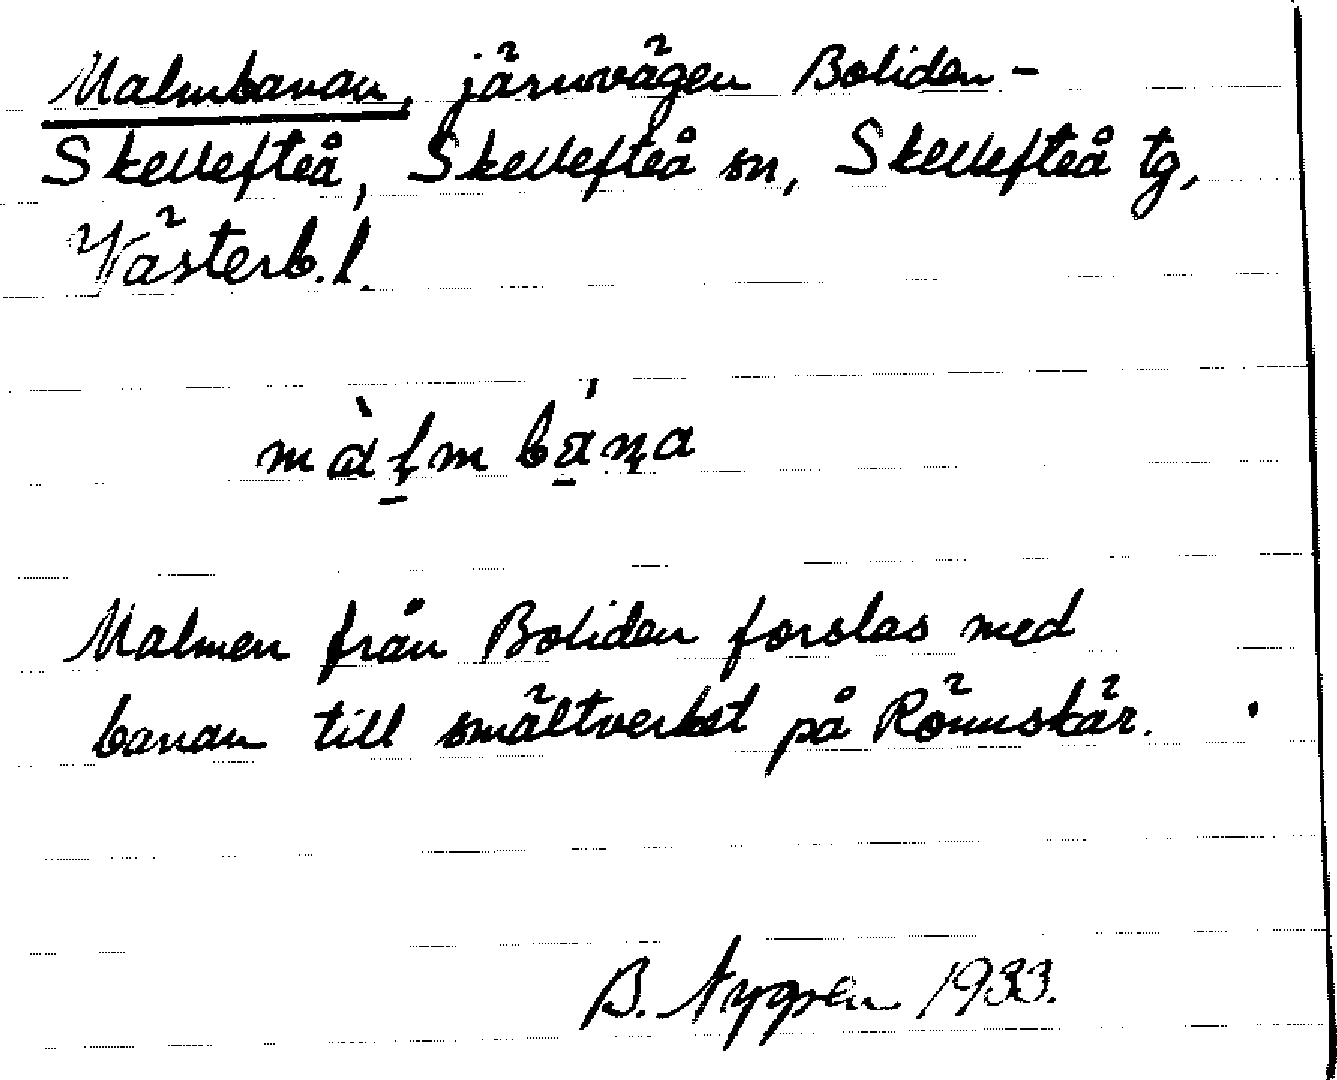 Malmbanan, järnvägen Boliden -
Skellefteå, Skellefteå sn, Skellefteå tg,
Västerb. l.
Malmen från Boliden forslas med
banan till smältverket på Rönnskär.
B. Nygren 1933.